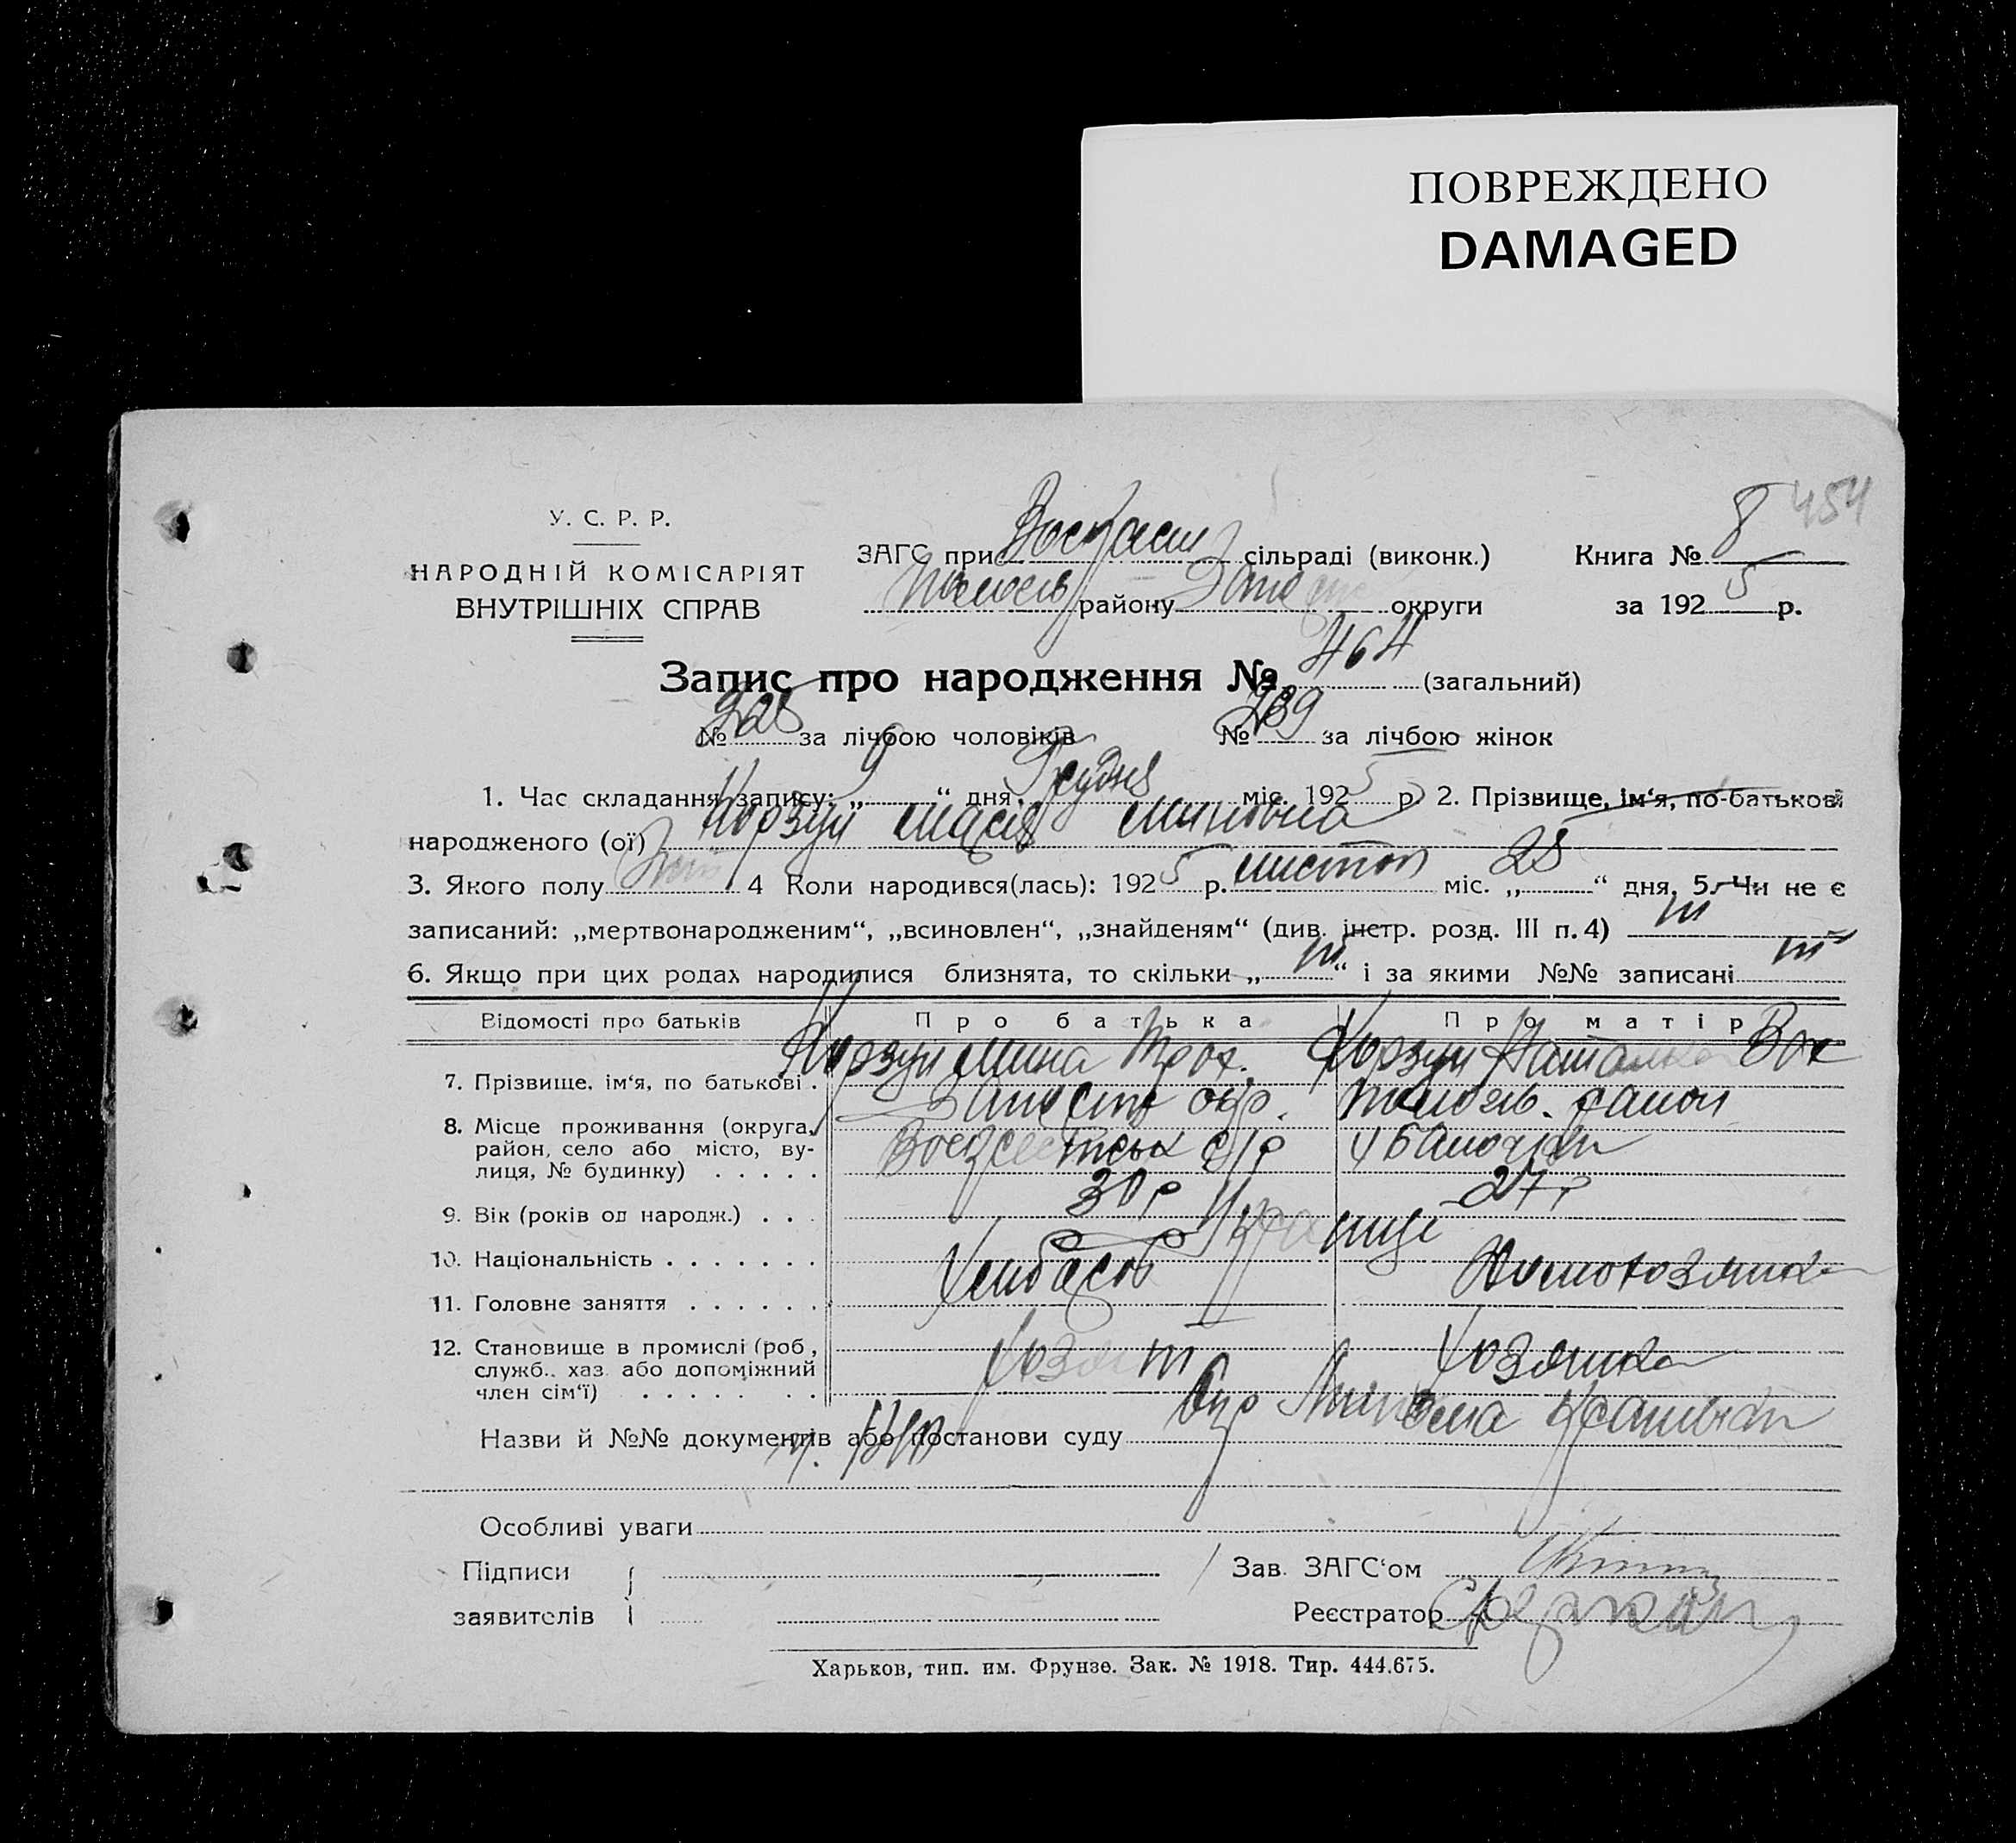 ПОВРЕЖДЕНО
DAMAGED
454
У. С. Р. Р.
НАРОДНІЙ КОМІСАРІЯТ
ВНУТРІШНІХ СПРАВ
ЗАГС при сільраді (виконк.)
району округи
Книга № 8
за 1925 р.
Запис про народження № 464 (загальний)
№ 225 за лічбою чоловіків № 239 за лічбою жінок
1. Час складання запису: „ 9 “ дня Грудня міс. 1925 р. 2. Прізвище, ім‘я, по-батькові
народженого (ої) Корзун Марія Миновна
3. Якого полу 4 Коли народився(лась): 1925 р. листоп міс. „ 28 “ дня, 5. Чи не є
записаний: „мертвонародженим“, „всиновлен“, „знайденям“ (див. інстр. розд. III п. 4)
6. Якщо при цих родах народилися близнята, то скільки „ “ і за якими №№ записані
Відомості про батьків Про батька Про матір
7. Прізвище, ім‘я, по батькові . Корзун Мина Трох. Корзун Наталка
8. Місце проживання (округа, район, село або місто, вулиця, № будинку) . . . . . окр. район
с/р
9. Вік (років од народж.) . . . 30 р 27 р
10. Національність . . . . . . . Українці
11. Головне заняття . . . . . . Хлібороб Домохозяйка
12. Становище в промислі (роб., служб., хаз. або допоміжний член сім‘ї) . . . . . . . . Хозяїн Хозяйка
Назви й №№ документів або постанови суду
Особливі уваги
Підписи
заявителів
Зав. ЗАГС‘ом
Реєстратор
Харьков, тип. им. Фрунзе. Зак. № 1918. Тир. 444.675.